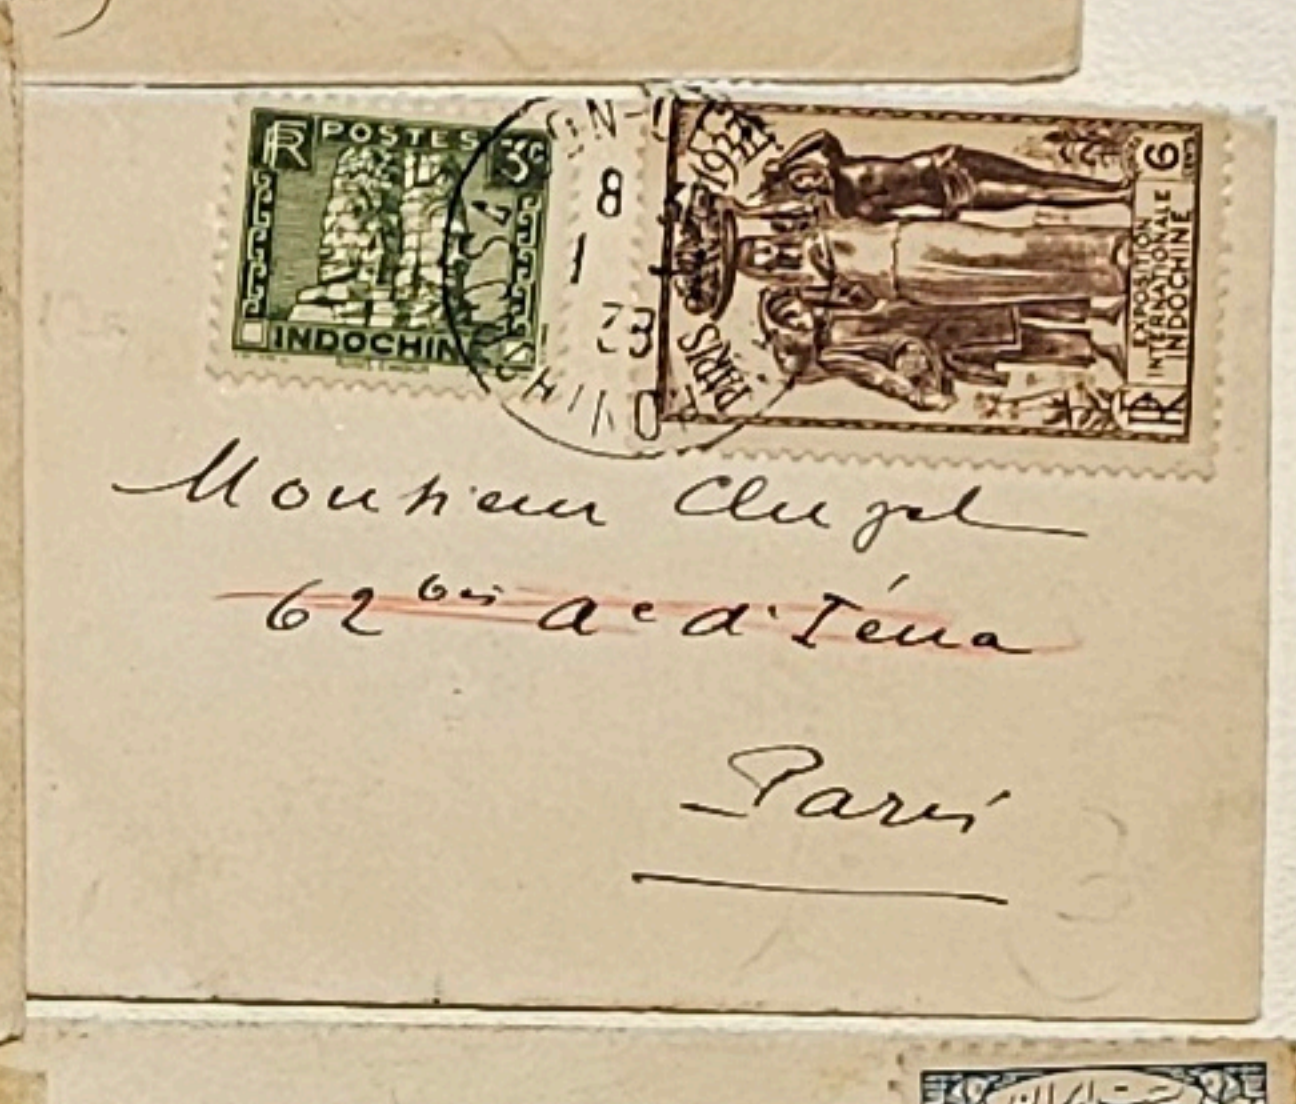 RF POSTES 3c
INDOCHINE
8
1
38
PARIS 1937
6 CENTS
EXPOSITION
INTERNATIONALE
INDOCHINE
RF
Monsieur Cluzel
62 bis Ae d'Iéna
Paris